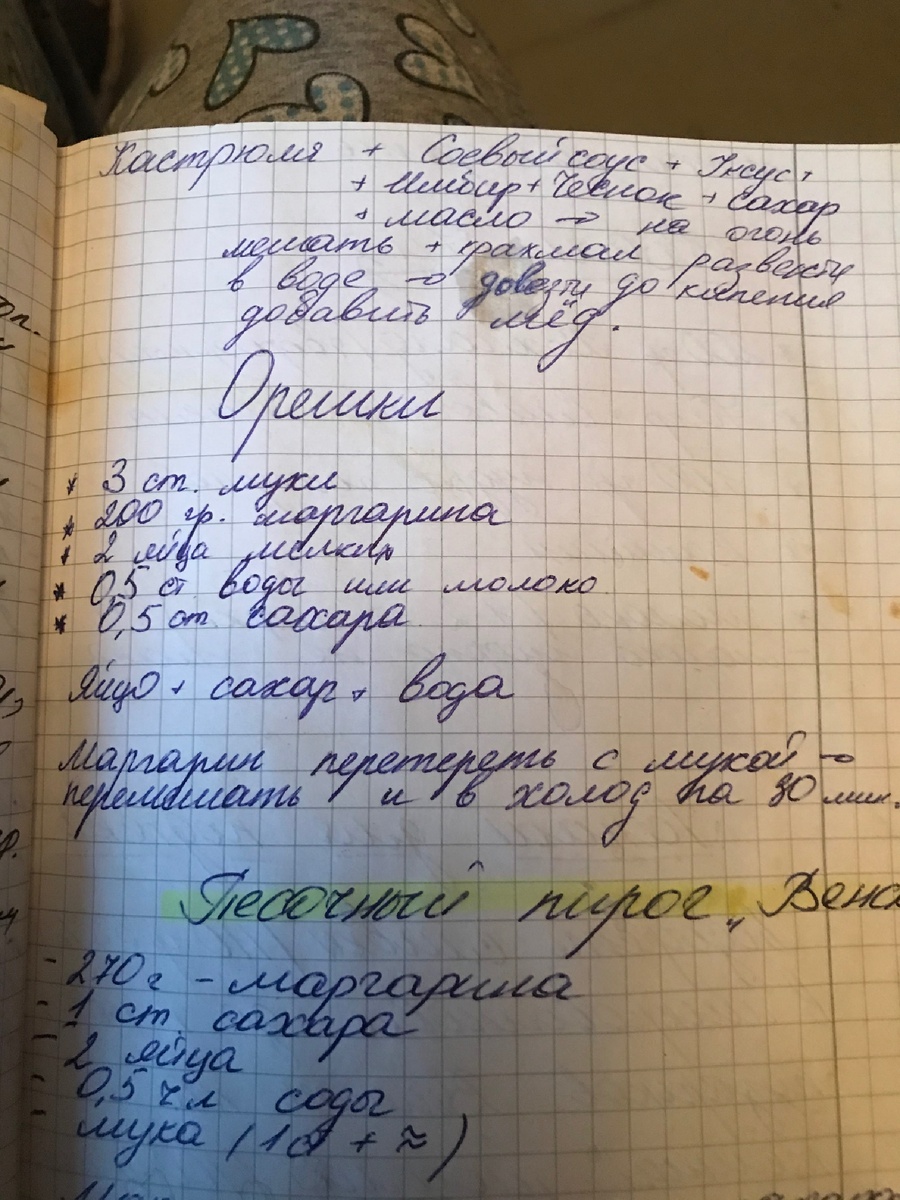 Кастрюля + Соевый соус + Уксус +
+ Имбирь + Чеснок + Сахар
+ масло → на огонь
мешать + крахмал развести
в воде → довезти до кипения
добавить мёд.
Орешки
* 3 ст. муки
* 200 гр. маргарина
* 2 яйца мелких
* 0,5 ст воды или молоко
* 0,5 ст сахара
Яйцо + сахар + вода
Маргарин перетереть с мукой →
перемешать и в холод на 30 мин.
Песочный пирог „Вена
- 270 г - маргарина
- 1 ст. сахара
- 2 яйца
- 0,5 ч л соды
- мука